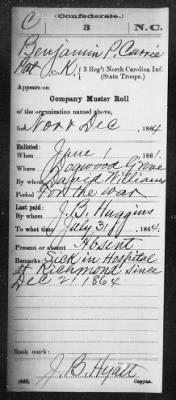 C (Confederate.)
3 N.C.
Benjamin P. Currie
Pvt Co. K, 3 Reg't North Carolina Inf.
(State Troops.)
Appears on
Company Muster Roll
of the organization named above,
for Nov & Dec, 1864
Enlisted:
When June 1, 1861.
Where Dogwood Grove
By whom David Williams
Period For the war
Last paid:
By whom J. B. Huggins
To what time July 31, 1864.
Present or absent Absent
Remarks: Sick in Hospital
at Richmond since
Dec 21 1864
Book mark:
J. B. Hyatt
Copyist.